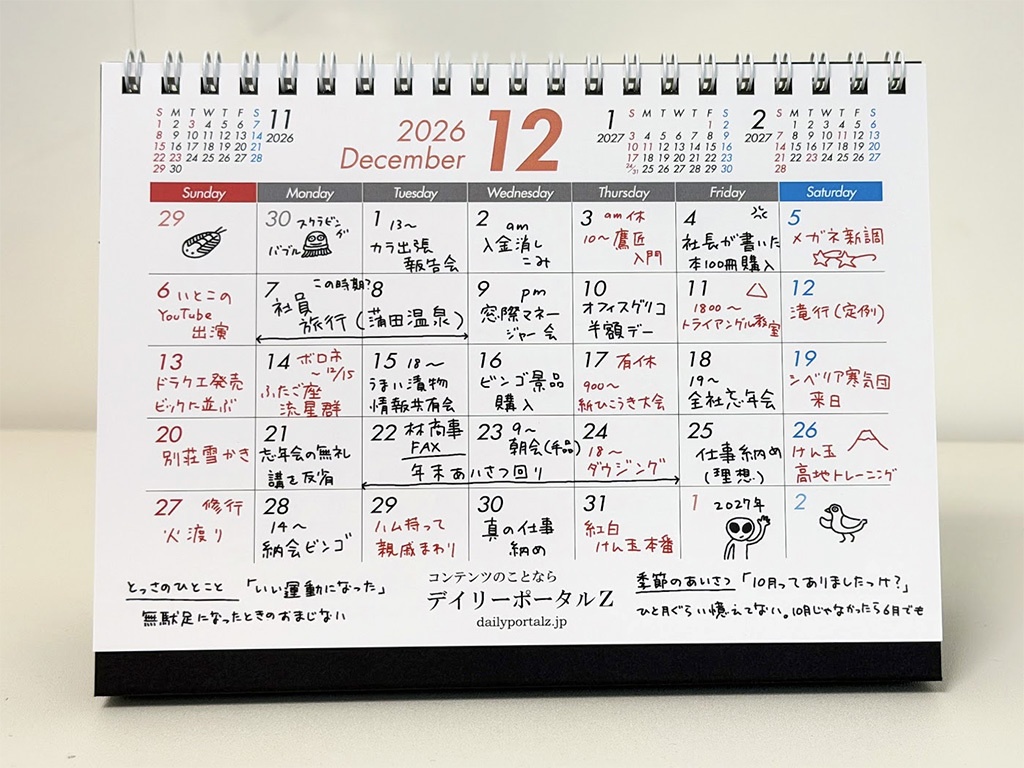 S M T W T F S 11
1 2 3 4 5 6 7 2026
8 9 10 11 12 13 14
15 16 17 18 19 20 21
22 23 24 25 26 27 28
29 30
2026
December
12
1 S M T W T F S
2027 1 2
3 4 5 6 7 8 9
10 11 12 13 14 15 16
17 18 19 20 21 22 23
24/31 25 26 27 28 29 30
2 S M T W T F S
2027 1 2 3 4 5 6
7 8 9 10 11 12 13
14 15 16 17 18 19 20
21 22 23 24 25 26 27
28
Sunday Monday Tuesday Wednesday Thursday Friday Saturday
29
30 スクラビング
バブル
1 13〜
カラ出張
報告会
2 am
入金消し
こみ
3 am休
10〜鷹匠
入門
4
社長が書いた
本100冊購入
5
メガネ新調
6 いとこの
YouTube
出演
7 この時期?
8
社員
旅行(蒲田温泉)
9 pm
窓際マネー
ジャー会
10
オフィスグリコ
半額デー
11
1800〜
トライアングル教室
12
滝行(定例)
13
ドラクエ発売
ビックに並ぶ
14 ボロネ
〜12/15
ふたご座
流星群
15 18〜
うまい漬物
情報共有会
16
ビンゴ景品
購入
17 有休
900〜
紙ひこうき大会
18
19〜
全社忘年会
19
シベリア寒気団
来日
20
別荘雪かき
21
忘年会の無礼
講を反省
22 林商事
FAX
23 9〜
朝会(手品)
24
18〜
ダウジング
年末あいさつ回り
25
仕事納め
(理想)
26
けん玉
高地トレーニング
27 修行
火渡り
28
14〜
納会ビンゴ
29
ハム持って
親戚まわり
30
真の仕事
納め
31
紅白
けん玉本番
1 2027年
2
とっさのひとこと 「いい運動になった」
無駄足になったときのおまじない
コンテンツのことなら
デイリーポータルZ
dailyportalz.jp
季節のあいさつ 「10月ってありましたっけ?」
ひと月ぐらい憶えてない。10月じゃなかったら6月でも